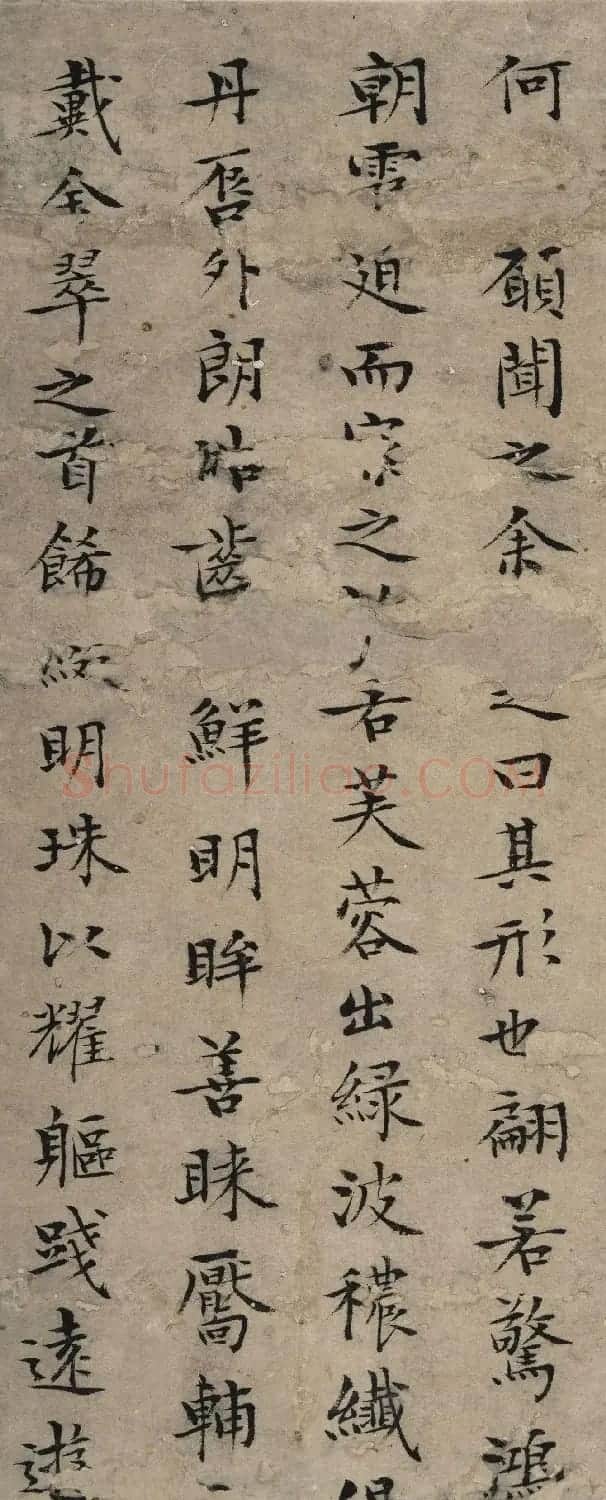 何 願聞之余 之曰其形也翩若驚鴻
朝雲迫而察之 若芙蓉出緑波穠纖得
丹脣外朗皓齒 鮮明眸善睞靨輔
戴金翠之首餙綴明珠以耀軀踐遠遊
Shufaziliao.COM